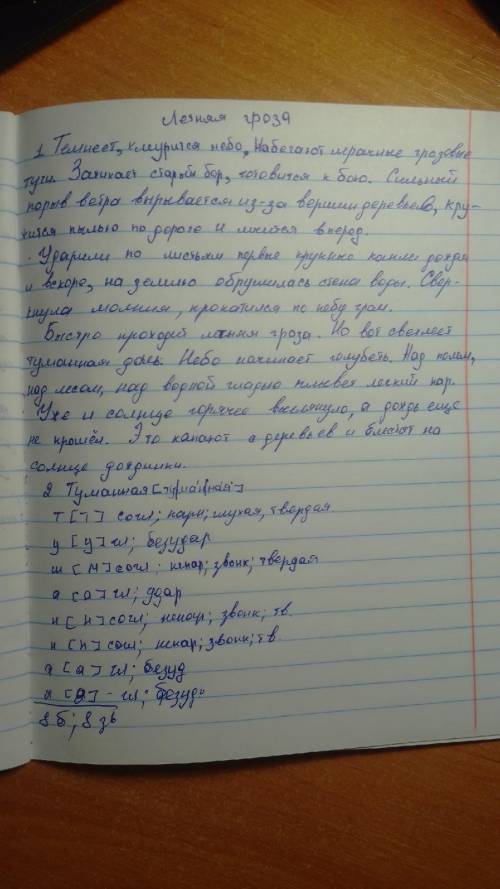 Летняя гроза
1 Темнеет, хмурится небо, Набегают мрачные грозовые
тучи. Затихает старый бор, готовится к бою. Сильный
порыв ветра вырывается из-за вершин деревьев, кру-
жится пылью по дороге и мчится вперед.
Ударили по листьям первые крупные капли дождя
и вскоре, на землю обрушилась стена воды. Свер-
кнула молния, прокатился по небу гром.
Быстро проходит летняя гроза. Но вот светлеет
туманная даль. Небо начинает голубеть. Над полем,
над лесом, над водной гладью плывёт легкий пар.
Уже и солнце горячее выглянуло, а дождь еще
не прошёл. Это капают с деревьев и блестят на
солнце дождинки.
2 Туманная
т [т] согл; парн; глухая, твердая
у [у] гл; безудар
м [м] согл; непар; звонк; твердая
а [а] гл; удар
н [н] согл; непар; звонк; тв.
н [н] согл; непар; звонк; тв.
а [а] гл; безуд
я [я] - гл; безуд
8 б; 8 зв